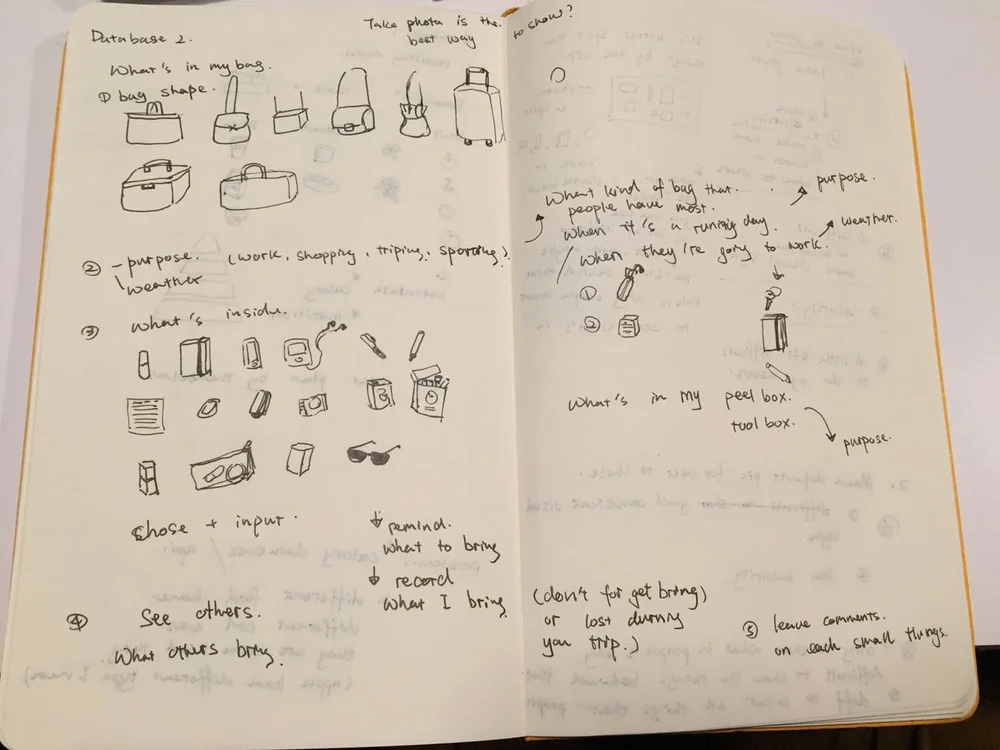 Database 2.
Take photo is the
best way
to show?
What's in my bag.
① bag shape.
② - purpose. (work, shopping, triping, sporting.)
\ weather
③ What's inside.
Chose + input.
remind.
what to bring
record
what I bring
④ See others.
What others bring.
What kind of bag that
people have most.
purpose.
When it's a
day.
weather.
when they're going to work.
①
②
What's in my peel box.
tool box.
purpose.
(don't forget bring)
or lost during
you trip.)
⑤ leave comments.
on each small things.